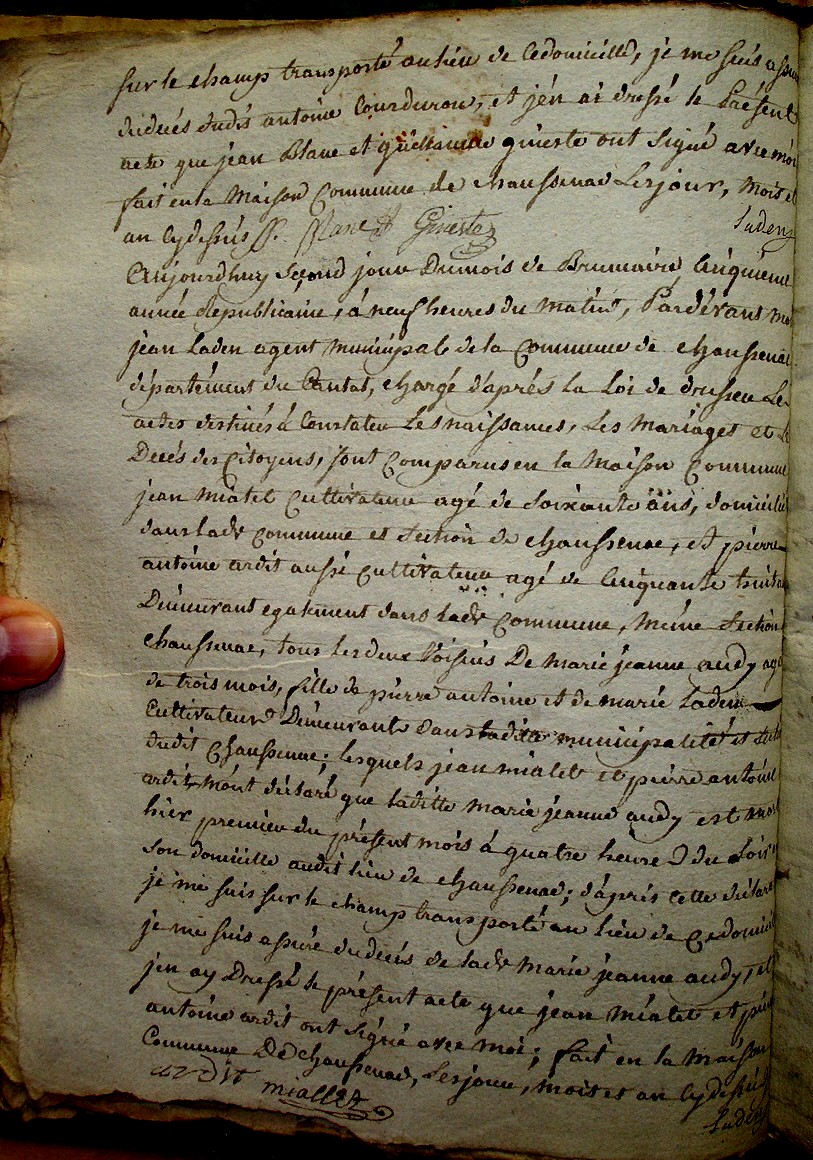 sur le champ transporté au lieu de ce domicille, je me suis assure
du decés dudit antoine Courduron, et jén ai dressé le présent
acte que jean Blanc et guillaume gineste ont signé avec moi
fait en la Maison Commune de chaussenac les jour, mois et
an cy dessus Blanc Gineste Laden
Aujourdhuy second jour Du mois de Brumaire, Cinquiéme
année républicaine, à neuf heures du matin, Pardévant moi
jean Laden agent municipal de la Commune de chaussenac
département du Cantal, chargé d'aprés la Loi de dresser Les
actes destinés à Constater Les naissances, Les Mariages et Le
Decés des Citoyens, sont Comparus en la Maison Commune
jean mialet Cultivateur agé de soixante ans, domicilié
dans lade Commune et section de chaussenac, et pierre
antoine ardit aussi cultivateur agé de Cinquante huit ans
Demeurant egalement dans lade Commune, même section
chaussenac, tous les deux Voisins De marie jeanne audy agé
de trois mois, fille de pierre antoine et de marie Laden
Cultivateurs Demeurants dans laditte municipalité et section
dudit Chaussenac; lesquels jean mialet et pierre antoine
ardit m'ont déclaré que laditte marie jeanne audy est morte
hier premier du présent mois à quatre heures du soir
son domicille audit lieu de chaussenac; d'aprés cette déclara
je me suis sur le champ transporté au lieu de ce domicile
je me suis assuré du decés de lade marie jeanne audy, et
j'en ay Dressé le présent acte que jean mialet et pierre
antoine ardit ont signé avec moi; fait en la maison
Commune De chaussenac, Les jour, mois et an cy dessus
ardit mialler Laden